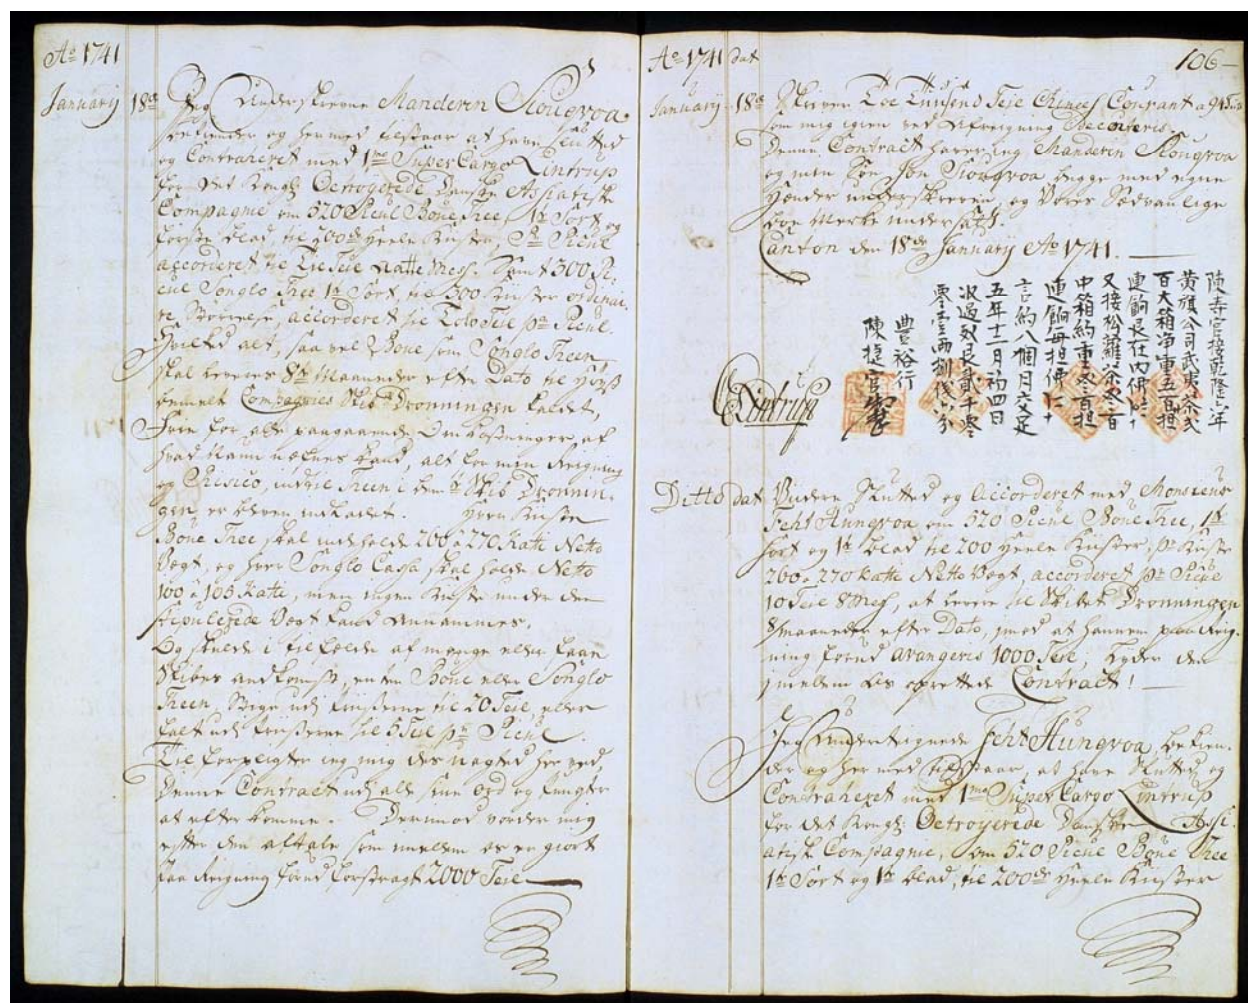 Ao 1741
January 18de Jeg Underskrevne Manderin Slougvoa
og hermed tilstaar at have slutted
og Contraheret med 1mo Super Cargo Lintrup
for det Kongl: Octroyerede Danske Assiatiske
Compagnie om 520 Picul Boue Thee, 1te Sort og
første blad, til 200de heele Kister, pr Picul
accorderet til Tie Teie Aatte Mess. Samt 300 Pi-
cul Songlo Thee 1te Sort, til 300 Kister ordinai-
re Størrelse, accorderet til Tolv Teie pr Picul.
Hvilked alt, saa vel Boue som Songlo Theen
skal leveres 8te Maaneder efter Dato til
Compagnies Skib Dronningen kaldet,
Frie for alle paagaaende Omkostninger, af
hvad Navn nævnes kand, alt for min Reigning
og Risico, indtil Theen i bemte Skib Dronnin-
gen er bleven indladet. Hver Kiste
Boue Thee skal indeholde 260 a 270 Katti Netto
Vegt, og hver Songlo Cassa skal holde Netto
100 a 105 Katti, men ingen Kiste under den
stipulerede Vegt kand annammes.
Og skulde i tilfelde af mange eller faae
Skibes ankomst, enten Boue eller Songlo
Theen, Stige udi Priiserne til 20 Teie, eller
falde udi Priiserne til 5 Teie pr Picul.
Tilforpligter jeg mig des uagted her ved
Denne Contract udi alle sine ord og
at efterkomme. Derimod vorder mig
efter den aftale som imellem os er giort
paa Reigning forud forstragt 2000 Teie
Ao 1741 dat 106
January 18de Skriver Toe Tusend Teie Chinees Courant a 94
som mig igien ved Afreigning Decorteris.
Denne Contract haver jeg Manderin Slougvoa
og min Søn Siougvoa begge med egne
Hænder underskreven, og Vores Sædvanlige
Merke undersatt.
Canton den 18de January Ao 1741.
陳寿官接乾隆六年
黃旗公司武夷茶弍
百大箱净重五百担
連餉
又接松蘿茶叁百
中箱約重叁百担
連餉每担
言約八個月交足
五年十二月初四日
收過 艮貳千零
零壹両捌
豊裕行
陳捷官
CLintrup
Ditto dat Viidere Sluttet og Accorderet med Monsieur
Feht Hungvoa om 520 Picul Boue Thee, 1te
Sort og 1te blad til 200 heele Kister, pr Kiste
260 a 270 Katti Netto Vegt, accorderet pr Picul
10 Teie 8 Mess, at levere til Skibet Dronningen
8 Maaneder efter Dato, imod at hannem paa Reig-
ning forud avangeris 1000 Teie, lyder den
imellem os oprettede Contract!
Jeg Underteignede Feht Hungvoa, bekien-
der og hermed tilstaar, at have Sluttet og
Contraheret med 1mo Super Cargo Lintrup
for det Kongl: Octroyerede Danske Assi-
atiske Compagnie, om 520 Picul Boue Thee
1te Sort og 1te blad, til 200de heele Kister